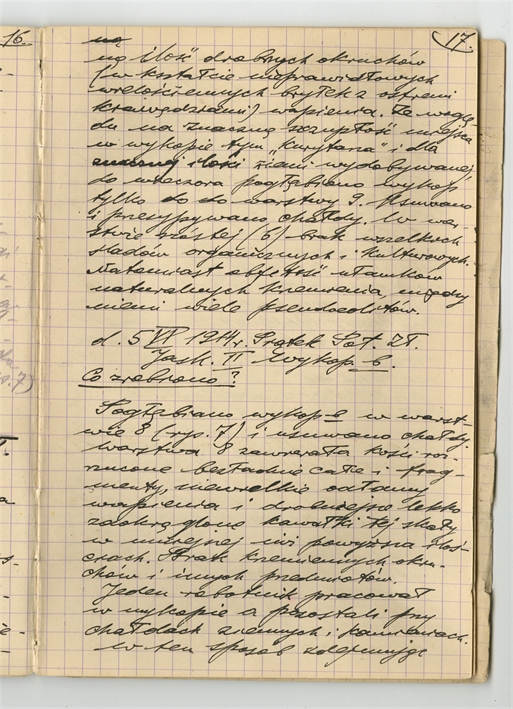 16.
17.
ną
ną ilość drobnych okruchów
(w kształcie nieprawidłowych
wielościennych bryłek z ostremi
krawędziami) wapienia. Ze względu
du na znaczną szczupłość miejsca
w wykopie tym „kurytarza" i dla
znacznej ilości ziemi wydobywanej
do wieczora pogłębiono wykop
tylko do do warstwy 9. Usuwano
i przesypywano hałdy. W war-
stwie szóstej (6) brak wszelkich
śladów organicznych i kulturowych.
Natomiast obfitość ułamków
naturalnych krzemienia, między
niemi wiele pseudoeolitów.
d. 5 VI 1914 r. Piątek
Jask. II Wykop b.
Co zrobiono?
Pogłębiano wykop w warst-
wie 8 (rys. 7) i usuwano hałdy.
Warstwa 8 zawierała kości roz-
rzucone bezładnie całe i frag-
menty, niewielkie odłamy
wapienia i drobniejsze lekko
zaokrąglone kawałki tej skały
w mniejszej niż powyższa iloś-
ciach. Brak krzemiennych okru-
chów i innych przedmiotów.
Jeden robotnik pracował
w wykopie a pozostali przy
hałdach ziemnych i kamieniach.
w ten sposób zdejmując